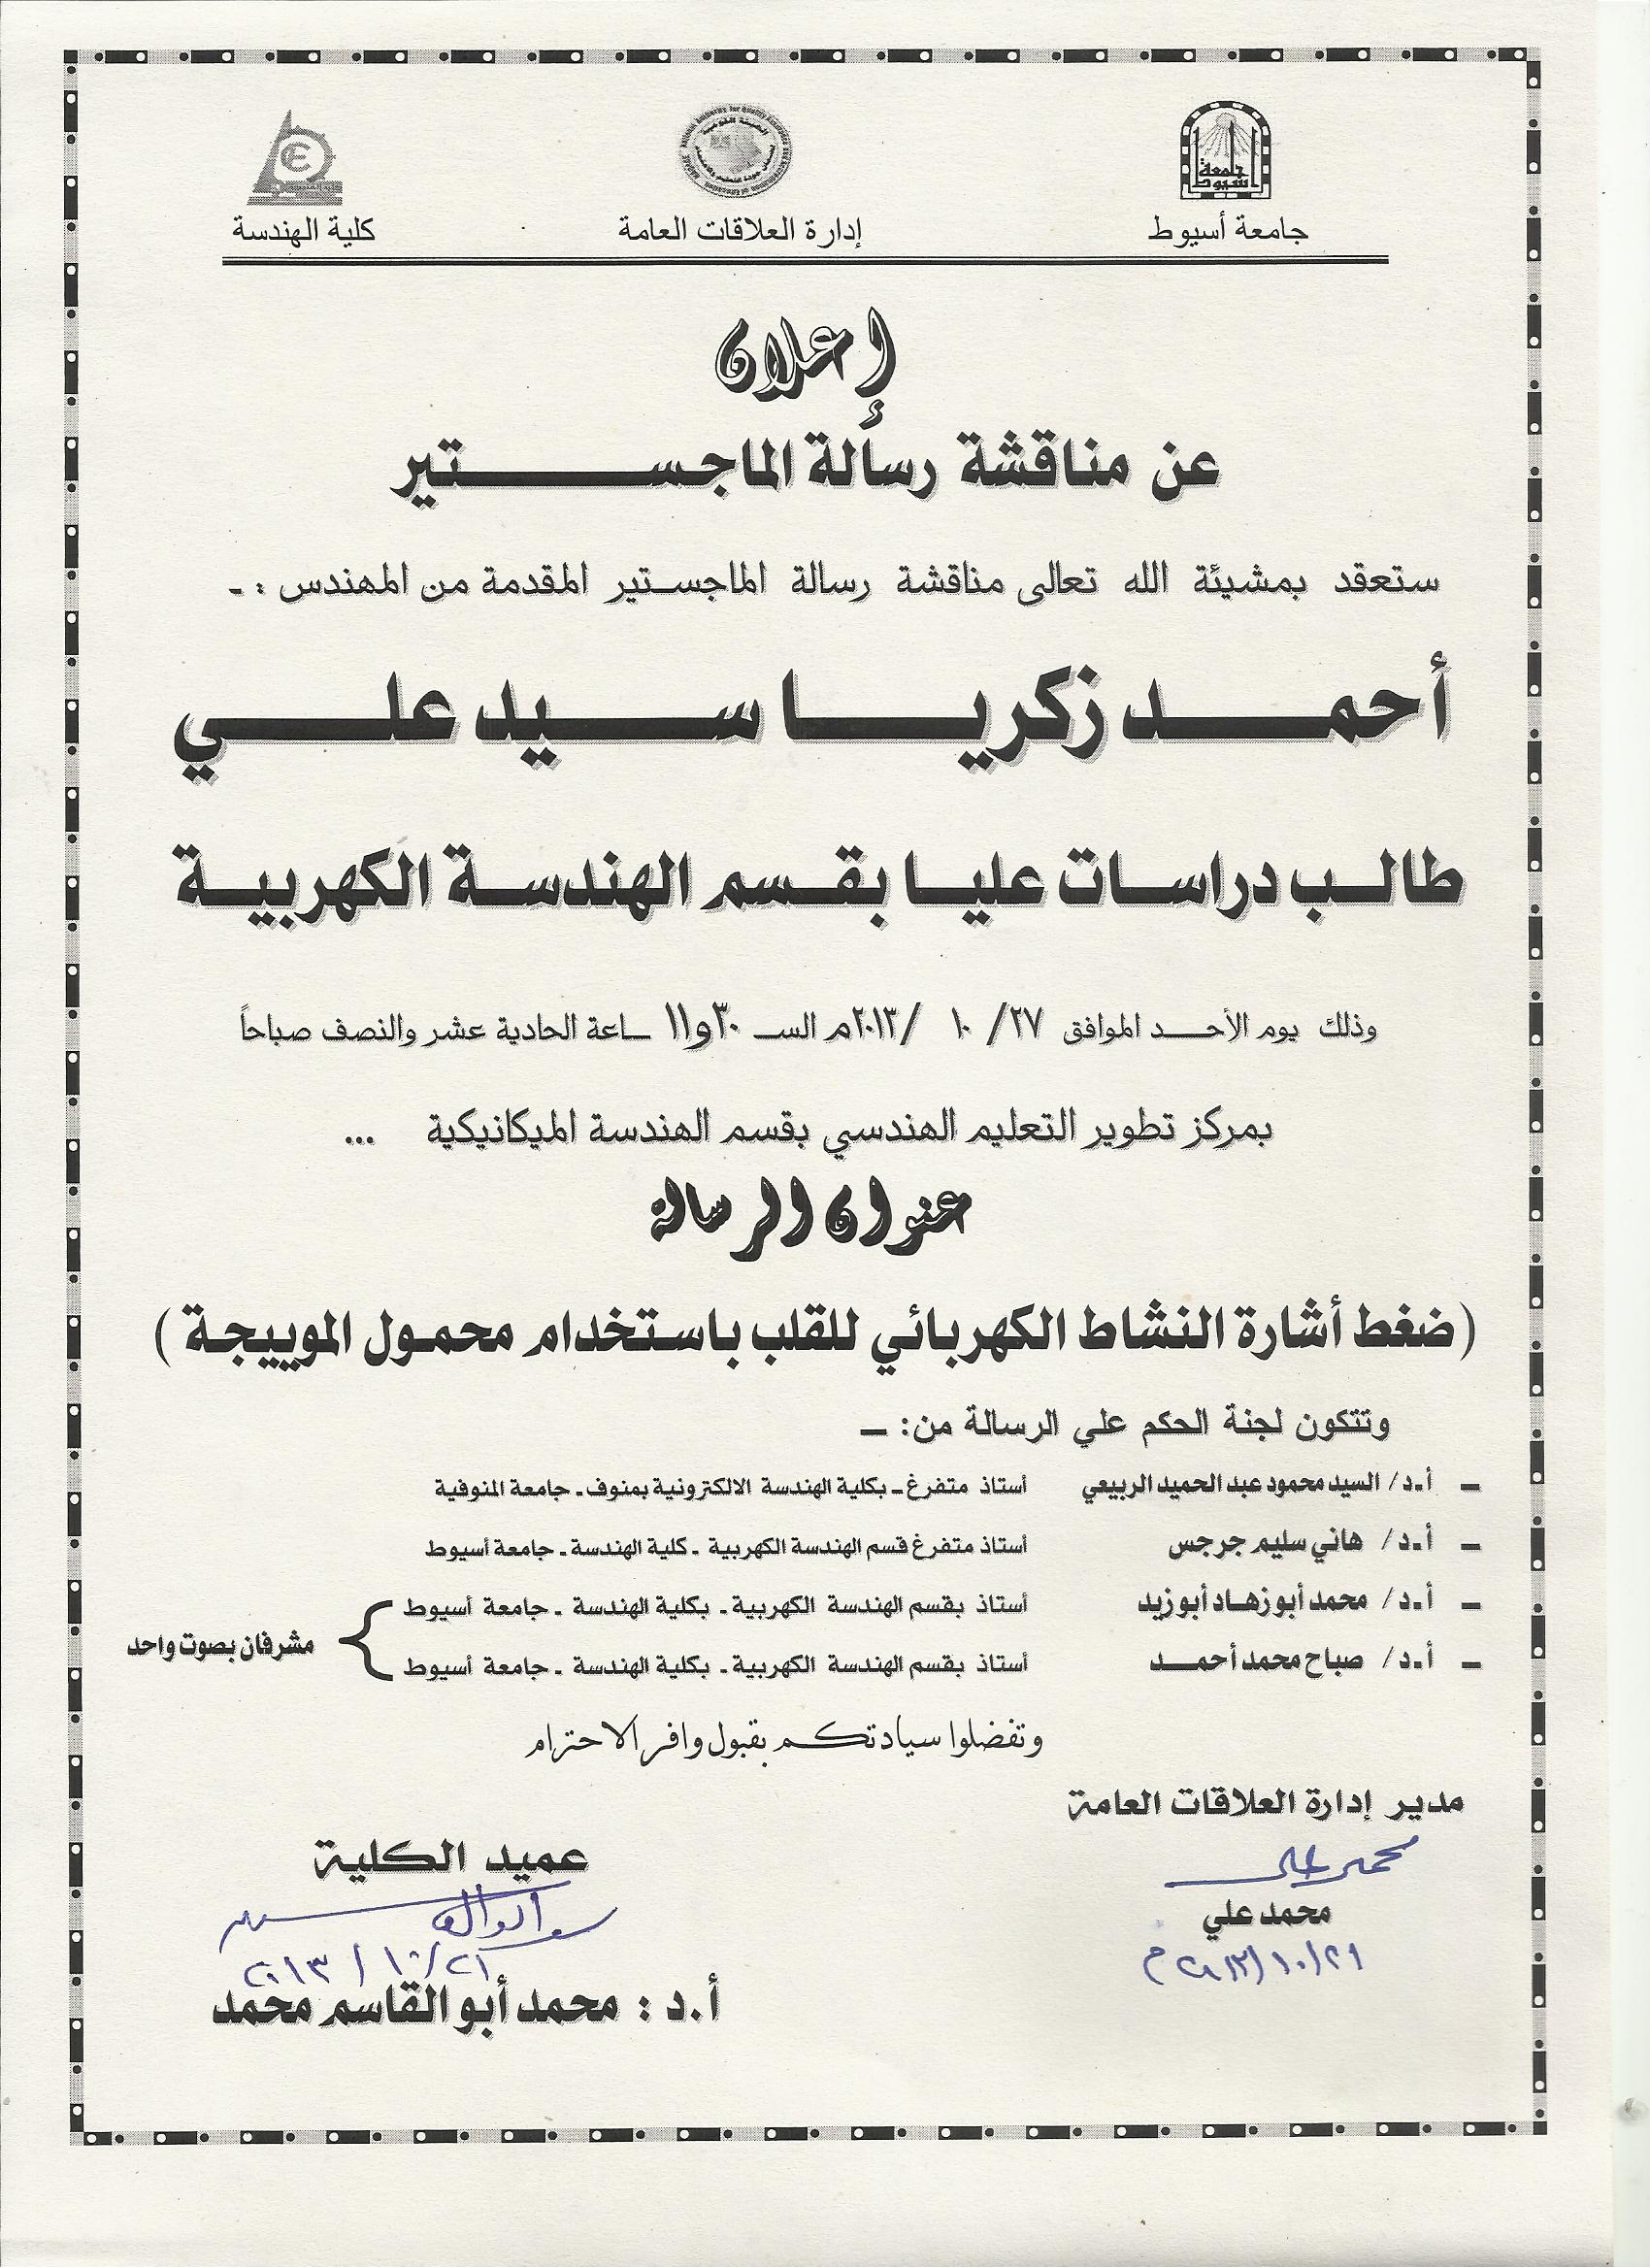 جامعة أسيوط
إدارة العلاقات العامة
كلية الهندسة
إعلان
عن مناقشة رسالة الماجستير
ستعقد بمشيئة الله تعالى مناقشة رسالة الماجستير المقدمة من المهندس :ـ
أحمد زكريا سيد علي
طالب دراسات عليا بقسم الهندسة الكهربية
وذلك يوم الأحد الموافق ٢٧/ ١٠ /٢٠١٣م الســ ٣٠و١١ ــاعة الحادية عشر والنصف صباحاً
بمركز تطوير التعليم الهندسي بقسم الهندسة الميكانيكية ...
عنوان الرسالة
(ضغط أشارة النشاط الكهربائي للقلب باستخدام محمول المويجة )
وتتكون لجنة الحكم علي الرسالة من: ــ
ــ أ.د/ السيد محمود عبد الحميد الربيعي أستاذ متفرغ ـ بكلية الهندسة الالكترونية بمنوف ـ جامعة المنوفية
ــ أ.د/ هاني سليم جرجس أستاذ متفرغ قسم الهندسة الكهربية ـ كلية الهندسة ـ جامعة أسيوط
ــ أ.د/ محمد أبو زهاد أبوزيد أستاذ بقسم الهندسة الكهربية ـ بكلية الهندسة ـ جامعة أسيوط
ــ أ.د/ صباح محمد أحمد أستاذ بقسم الهندسة الكهربية ـ بكلية الهندسة ـ جامعة أسيوط
مشرفان بصوت واحد
وتفضلوا سيادتكم بقبول وافر الاحترام
مدير إدارة العلاقات العامة
محمد علي
محمد علي
٢١/١٠/٢٠١٣م
عميد الكلية
٢١/١٠/٢٠١٣
أ.د : محمد أبو القاسم محمد